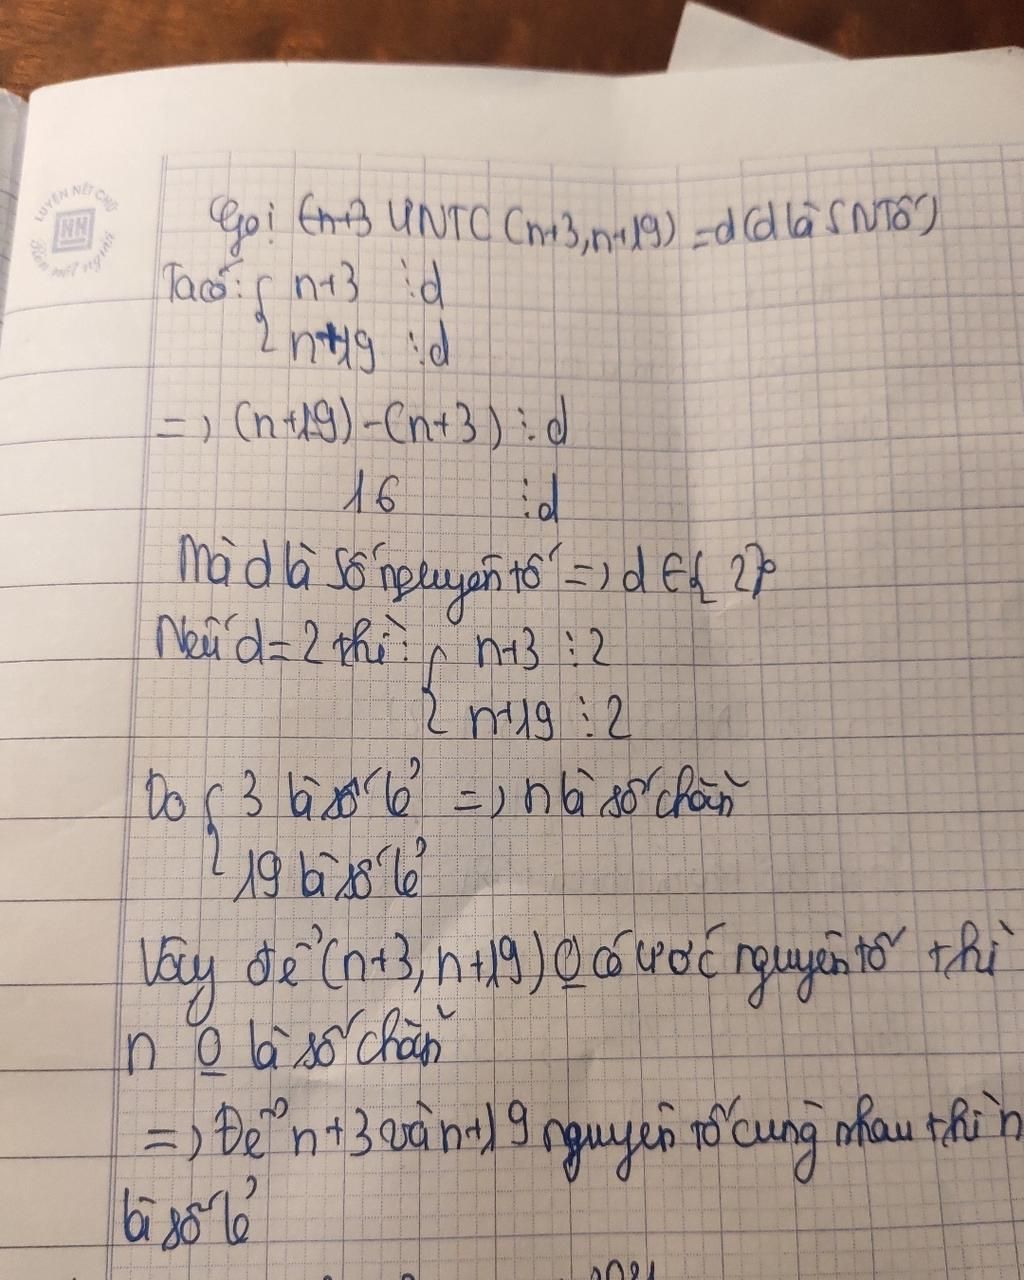 LUYỆN NÉT CHỮ
NH
Rèn nết người
Gọi (n+3 ƯNTC (n+3,n+19) =d(d là SNTố)
Ta có: { n+3 ⋮d
n+19 ⋮d
=> (n+19)-(n+3) ⋮d
16 ⋮d
Mà d là số nguyên tố => d ∈{ 2}
Nếu d=2 thì: { n+3 ⋮2
n+19 ⋮2
Do { 3 là số lẻ => n là số chẵn
19 là số lẻ
Vậy để (n+3, n+19) 0 có ước nguyên tố thì
n 0 là số chẵn
=> Để n+3 và n+19 nguyên tố cùng nhau thì n
là số lẻ